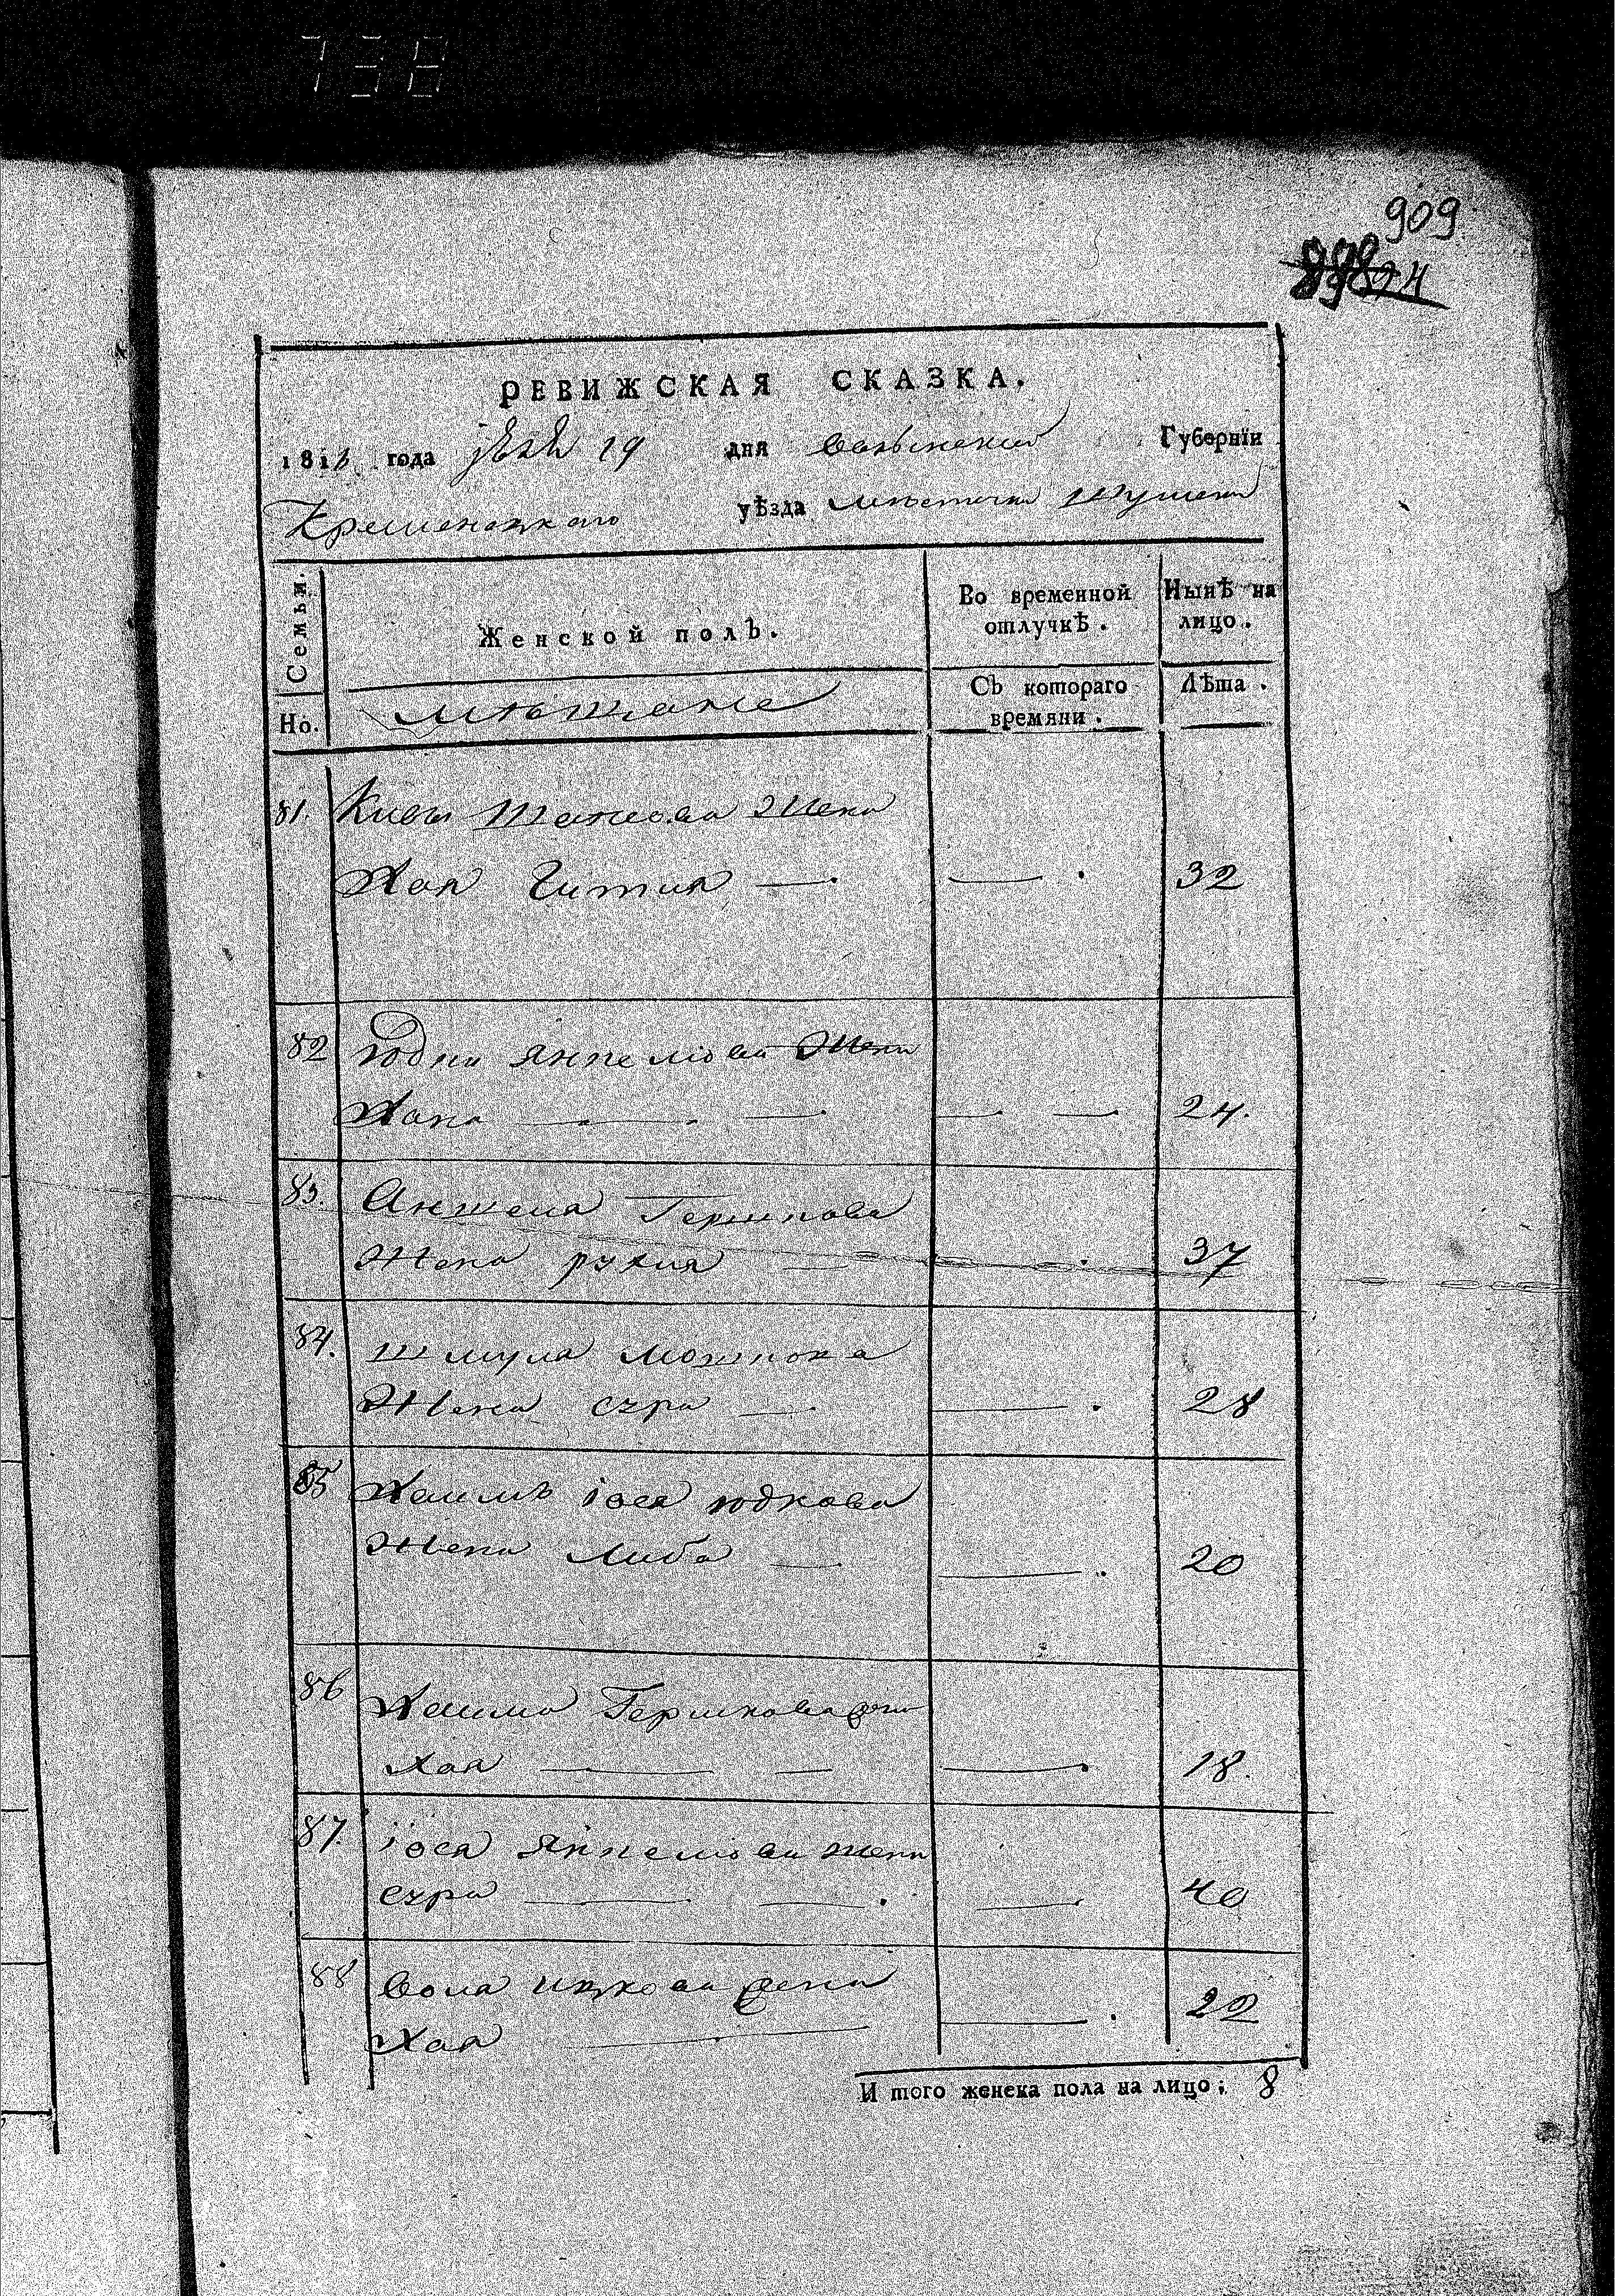 738
909
РЕВИЖСКАЯ СКАЗКА.
181 года 19 дня волынской Губернїи
Кременецкаго уѣзда местечка
Семьи.
Но.
Женской полъ.
мѣщане
Во временной отлучкѣ.
Съ котораго времяни.
Нынѣ на лицо.
Лѣта.
81. Кивы жена
Хая Гитля 32
82 юдки янкелiова жена
Хана 24.
83. Аншеля Гершкова
Жена рухля 37
84. шмуля мошкова
Жена сура 28
85 Хаимъ iося юдкова
Жена Либа 20
86 Хаима Гершкова
хая 18.
87. iося янкелiова жена
сура 40
88 вола ицкова жена
Хая 22
И того женска пола на лицо: 8